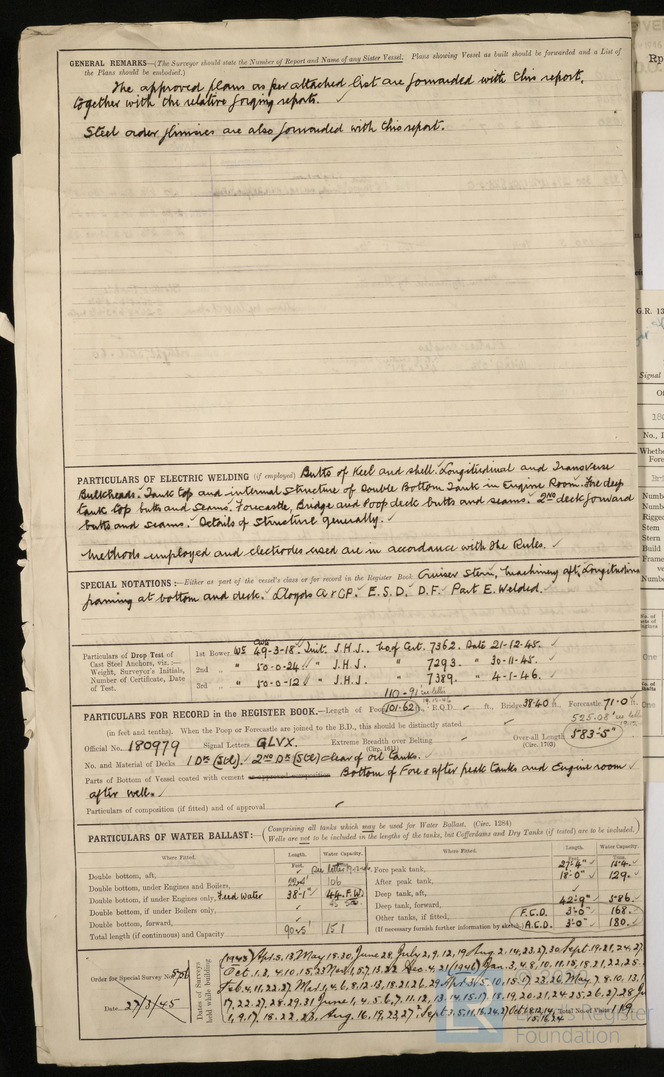 GENERAL REMARKS—(The Surveyor should state the Number of Report and Name of any Sister Vessel. Plans showing Vessel as built should be forwarded and a List of
the Plans should be embodied.)
The approved plans as per attached list are forwarded with this report,
together with the relative forging reports. ✓
Steel order are also forwarded with this report.
PARTICULARS OF ELECTRIC WELDING (if employed) Butts of Keel and shell. Longitudinal and Transverse
Bulkheads. Tank top and internal structure of Double Bottom Tank in Engine Room. The deep
tank top butts and seams. Forecastle, Bridge and Poop deck butts and seams. 2ND deck forward
butts and seams. Details of structure generally. ✓
Methods employed and electrodes used are in accordance with the Rules. ✓
SPECIAL NOTATIONS:— Either as part of the vessel's class or for record in the Register Book. Cruiser Stern, Machinery aft, Longitudinal
framing at bottom and deck. Lloyds A & CP. E.S.D. D.F. Part E. Welded.
Particulars of Drop Test of
Cast Steel Anchors, viz.:—
Weight, Surveyor's Initials,
Number of Certificate, Date
of Test.
1st Bower Ws 49-3-18 Init. J.H.J. No of Cert. 7362. Date 21-12-45. ✓
2nd " " 50-0-24 " J.H.J. " 7293. " 30-11-45. ✓
3rd " " 50-0-12 " J.H.J. " 7389. " 4-1-46. ✓
110-91 see letter
PARTICULARS FOR RECORD in the REGISTER BOOK.—Length of Poop 101-62 ft., R.Q.D. ✓ ft., Bridge 38.40 ft., Forecastle 71.0 ft.
525.08' see letter
(in feet and tenths). When the Poop or Forecastle are joined to the B.D., this should be distinctly stated
Official No. 180979 Signal Letters GLVX. Extreme Breadth over Belting ✓ Over-all Length 583'-5"
(Circ. 1611) (Circ. 1703)
No. and Material of Decks 1 Dk (Stl). 2ND Dk (Stl) clear of oil tanks.
Parts of Bottom of Vessel coated with cement Bottom of Fore & after peak tanks and Engine room
after well. ✓
Particulars of composition (if fitted) and of approval ✓
PARTICULARS OF WATER BALLAST:— (Comprising all tanks which may be used for Water Ballast. (Circ. 1284)
Wells are not to be included in the lengths of the tanks, but Cofferdams and Dry Tanks (if tested) are to be included.)
Where Fitted. Length. Water Capacity. Where Fitted. Length. Water Capacity.
Double bottom, aft, ✓ see letter Fore peak tank, 27'-4" ✓ 184. ✓
Double bottom, under Engines and Boilers, 106 After peak tank, 18'-0" ✓ 129. ✓
Double bottom, if under Engines only, Feed Water 38'-1" 44. F.W. Deep tank, aft,
Double bottom, if under Boilers only, ✓ Deep tank, forward, 42'-9" ✓ 586. ✓
Double bottom, forward, ✓ Other tanks, if fitted, F.C.D. 3'-0" 168. ✓
Total length (if continuous) and Capacity 90.5' 151 (If necessary furnish further information by sketch.) A.C.D. 3'-0" 180. ✓
Order for Special Survey No. 5756
Date 27/3/45
Dates of Surveys
held while building
(1945) Apl. 5. 13 May 18. 30 June 28 July 2, 9, 12, 19 Aug. 2. 14, 23, 27, 30 Sept. 19. 21, 24. 27.
Oct. 1. 2. 4. 10. 15. 23 Nov. 1. 5. 7. 13. 22 Dec. 4. 21 (1946) Jan. 3, 4, 8, 10, 11, 15, 18, 21, 22, 25.
Feb. 4. 11, 22. 27 Mar. 1. 4, 6, 8, 12, 13, 18, 21, 26, 29
17, 22, 27, 28, 29, 31 June 1, 4, 5, 6, 7, 11, 12, 13, 14, 15, 17, 18, 19, 20, 21, 24, 25, 26, 27, 28
1, 9, 17, 18, 22, 23, Aug. 16, 19, 23, 27 Sept. 3. 5. 11. 16. 24. 27 Oct. 1. 8. 12. 14.
15. 16. 24
Total No. of Visits 119.
Foundation